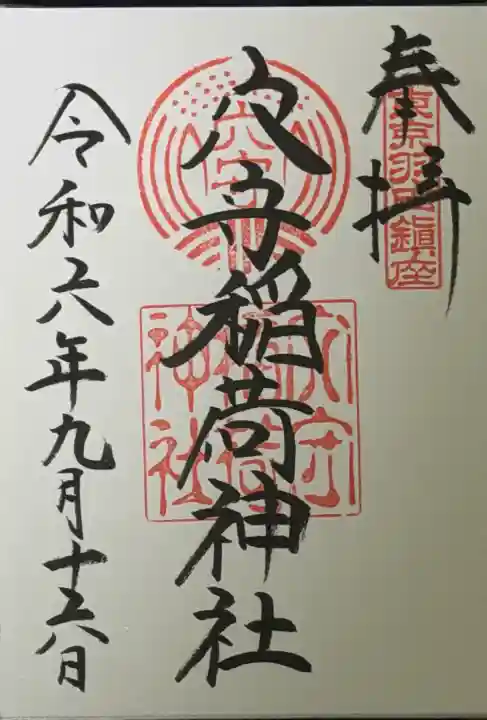 奉拝
東京羽田鎮座
穴守稲荷神社
穴守
穴守稲荷神社
令和六年九月十六日